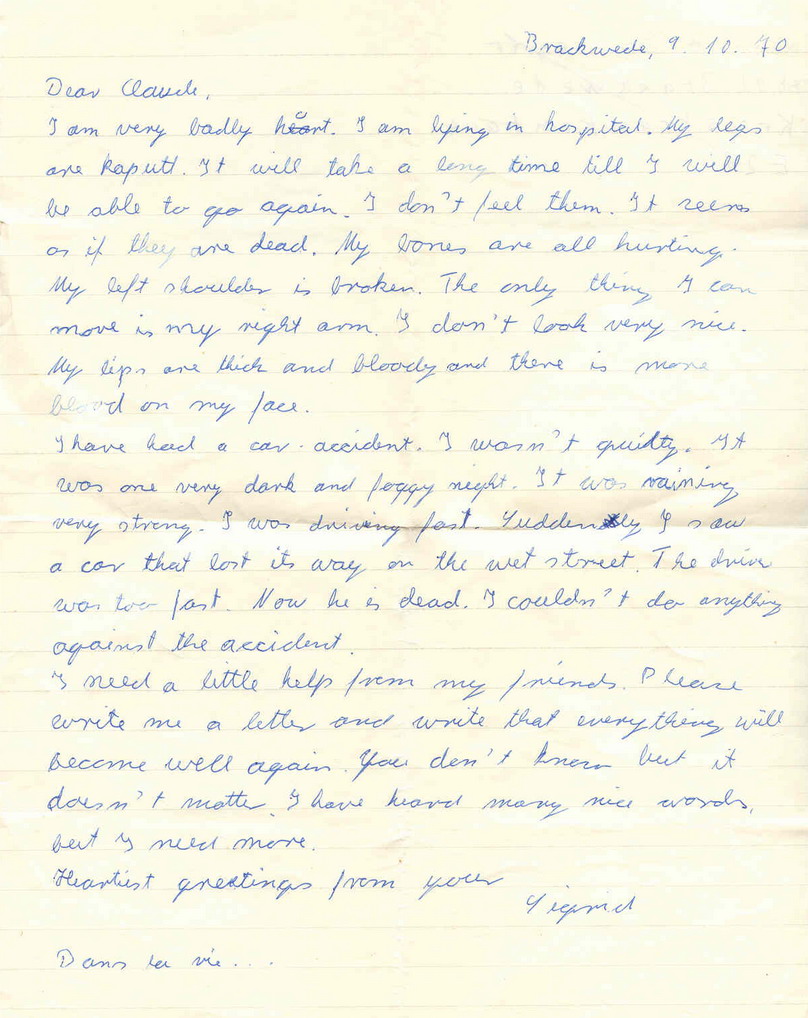 Brackwede, 9. 10. 70
Dear Claude,
I am very badly heört. I am lying in hospital. My legs
are kaputt. It will take a long time till I will
be able to go again. I don't feel them. It seems
as if they are dead. My bones are all hurting.
My left shoulder is broken. The only thing I can
move is my right arm. I don't look very nice.
My lips are thick and bloody and there is more
blood on my face.
I have had a car-accident. I wasn't guilty. It
was one very dark and foggy night. It was raining
very strong. I was driving fast. Suddenly I saw
a car that lost its way on the wet street. The driver
was too fast. Now he is dead. I couldn't do anything
against the accident.
I need a little help from my friends. Please
write me a letter and write that everything will
become well again. You don't know but it
doesn't matter. I have heard many nice words,
but I need more.
Heartiest greetings from your
Sigrid
Dans la vie...